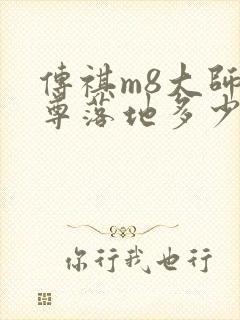 傳祺m8大師
尊落地多少
你行我也行